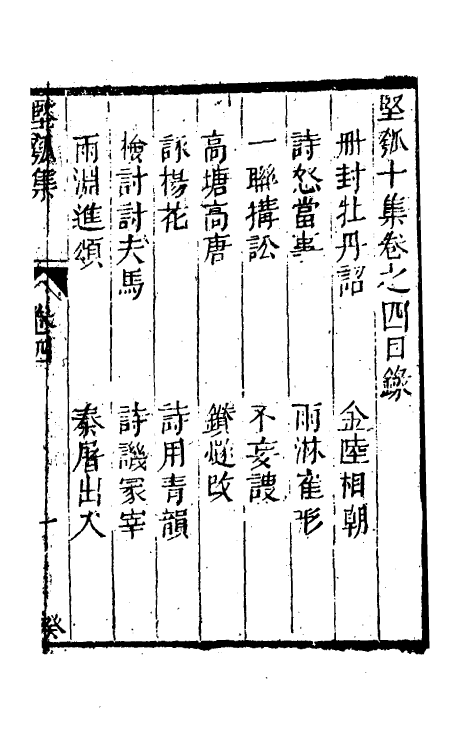 堅瓠十集卷之四目錄
冊封牡丹詔　金陸相朝
詩怒當事　雨淋崔形
一聯搆訟　不妄謏
高塘高唐　鑽𤐫改
詠楊花　詩用青韻
檢討討夫馬　詩譏冢宰
雨淵進頌　秦厝出犬
堅瓠集　卷四　一　癸